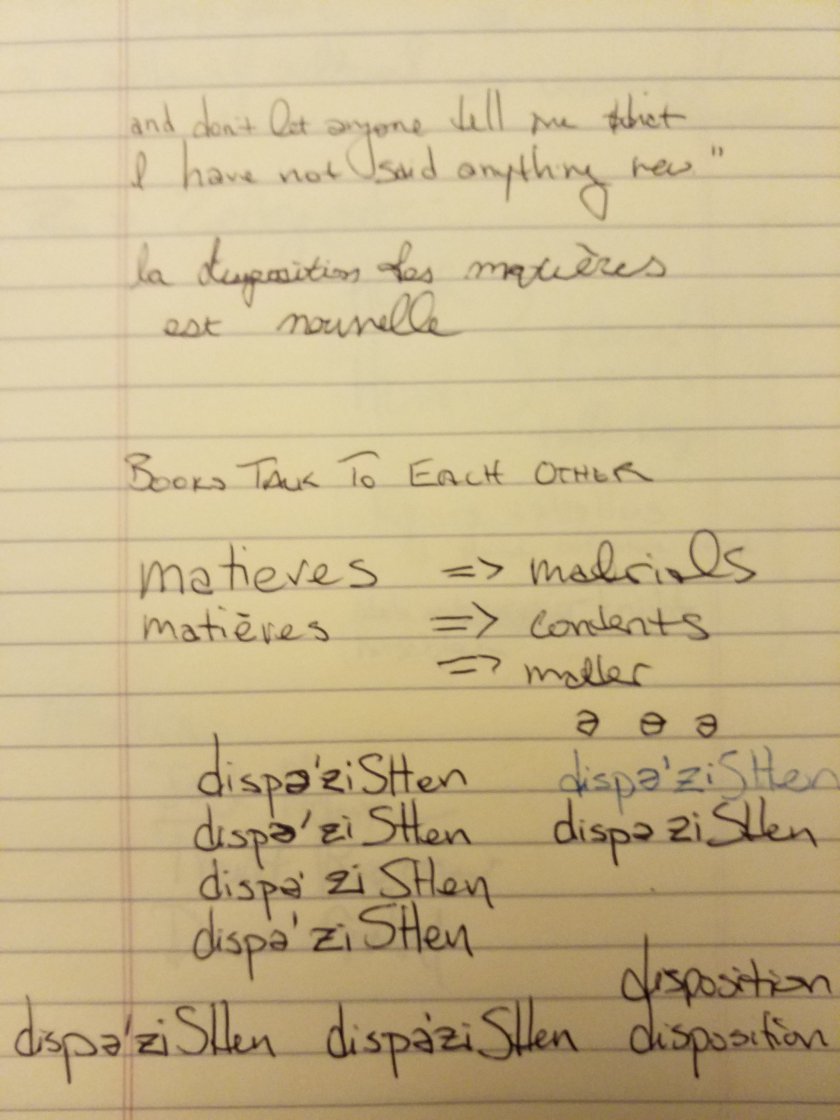 and don't let anyone tell me that
I have not said anything new"
la disposition des matières
est nouvelle
BOOKS TALK TO EACH OTHER
matieres => materials
matières => contents
=> matter
ə ə ə
dispə'ziSHen dispə'ziSHen
dispə'ziSHen dispəziSHen
dispə'ziSHen
dispə'ziSHen
disposition
dispə'ziSHen dispə'ziSHen disposition